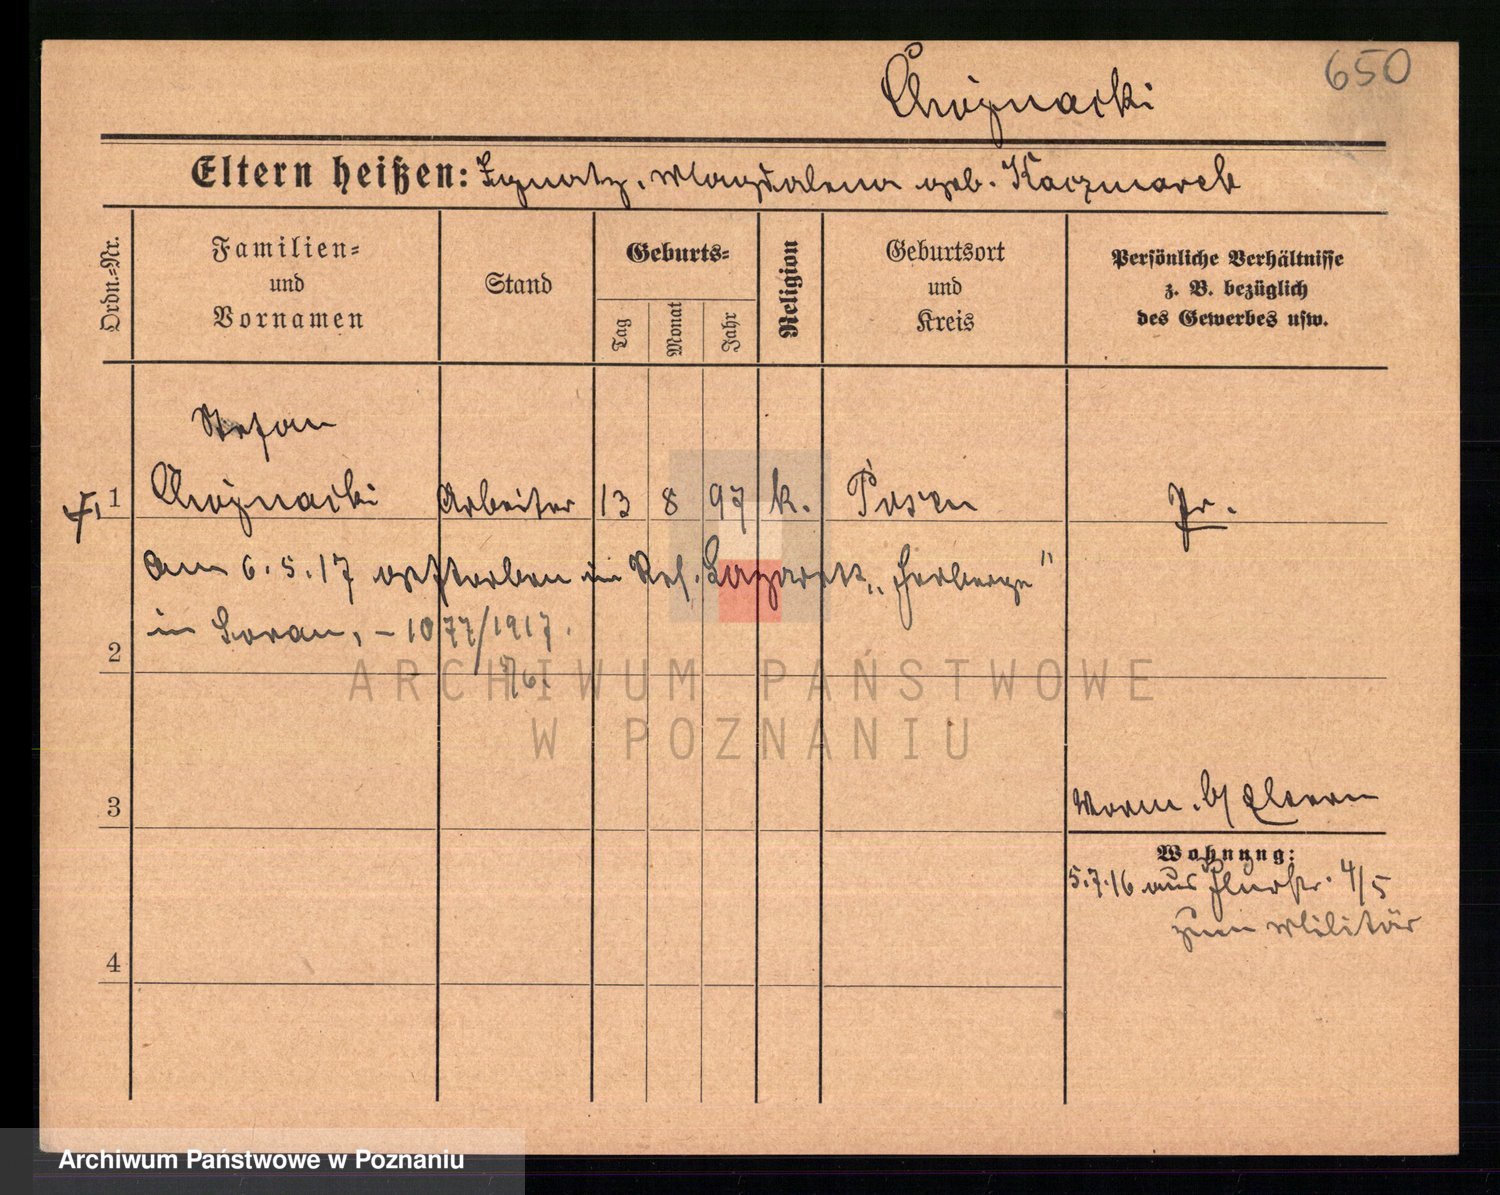 650
Chojnacki
Eltern heißen: Ignatz, Magdalena geb. Kaczmarek
Ordn.=Nr.
Familien=
und
Vornamen
Stand
Geburts=
Tag
Monat
Jahr
Religion
Geburtsort
und
Kreis
Persönliche Verhältnisse
z. B. bezüglich
des Gewerbes usw.
Stefan
1 Chojnacki Arbeiter 13 8 97 k. Posen Pr.
am 6.5.17 gestorben im Res. Lazarett „Herberge"
in Soran, – 1077/1917.
2
ARCHIWUM PAŃSTWOWE
W POZNANIU
3
Worm. b/ Eltern
Wohnung:
5.7.16 aus Flurstr. 4/5
zum Militär
4
Archiwum Państwowe w Poznaniu